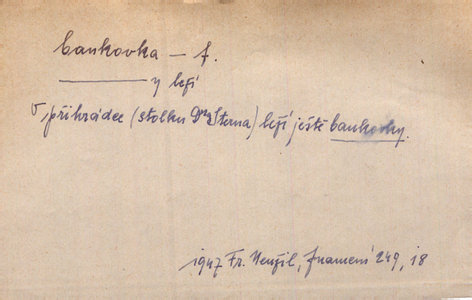 bankovka – f.
——— y leží
V přihrádce (stolku Dra Sterna) leží ještě bankovky.
1947 Fr. Neužil, Znamení 249, 18